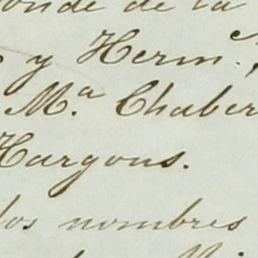 onde de la
y Herm.ª,
M.ª Chaber
Hargous.
los nombres